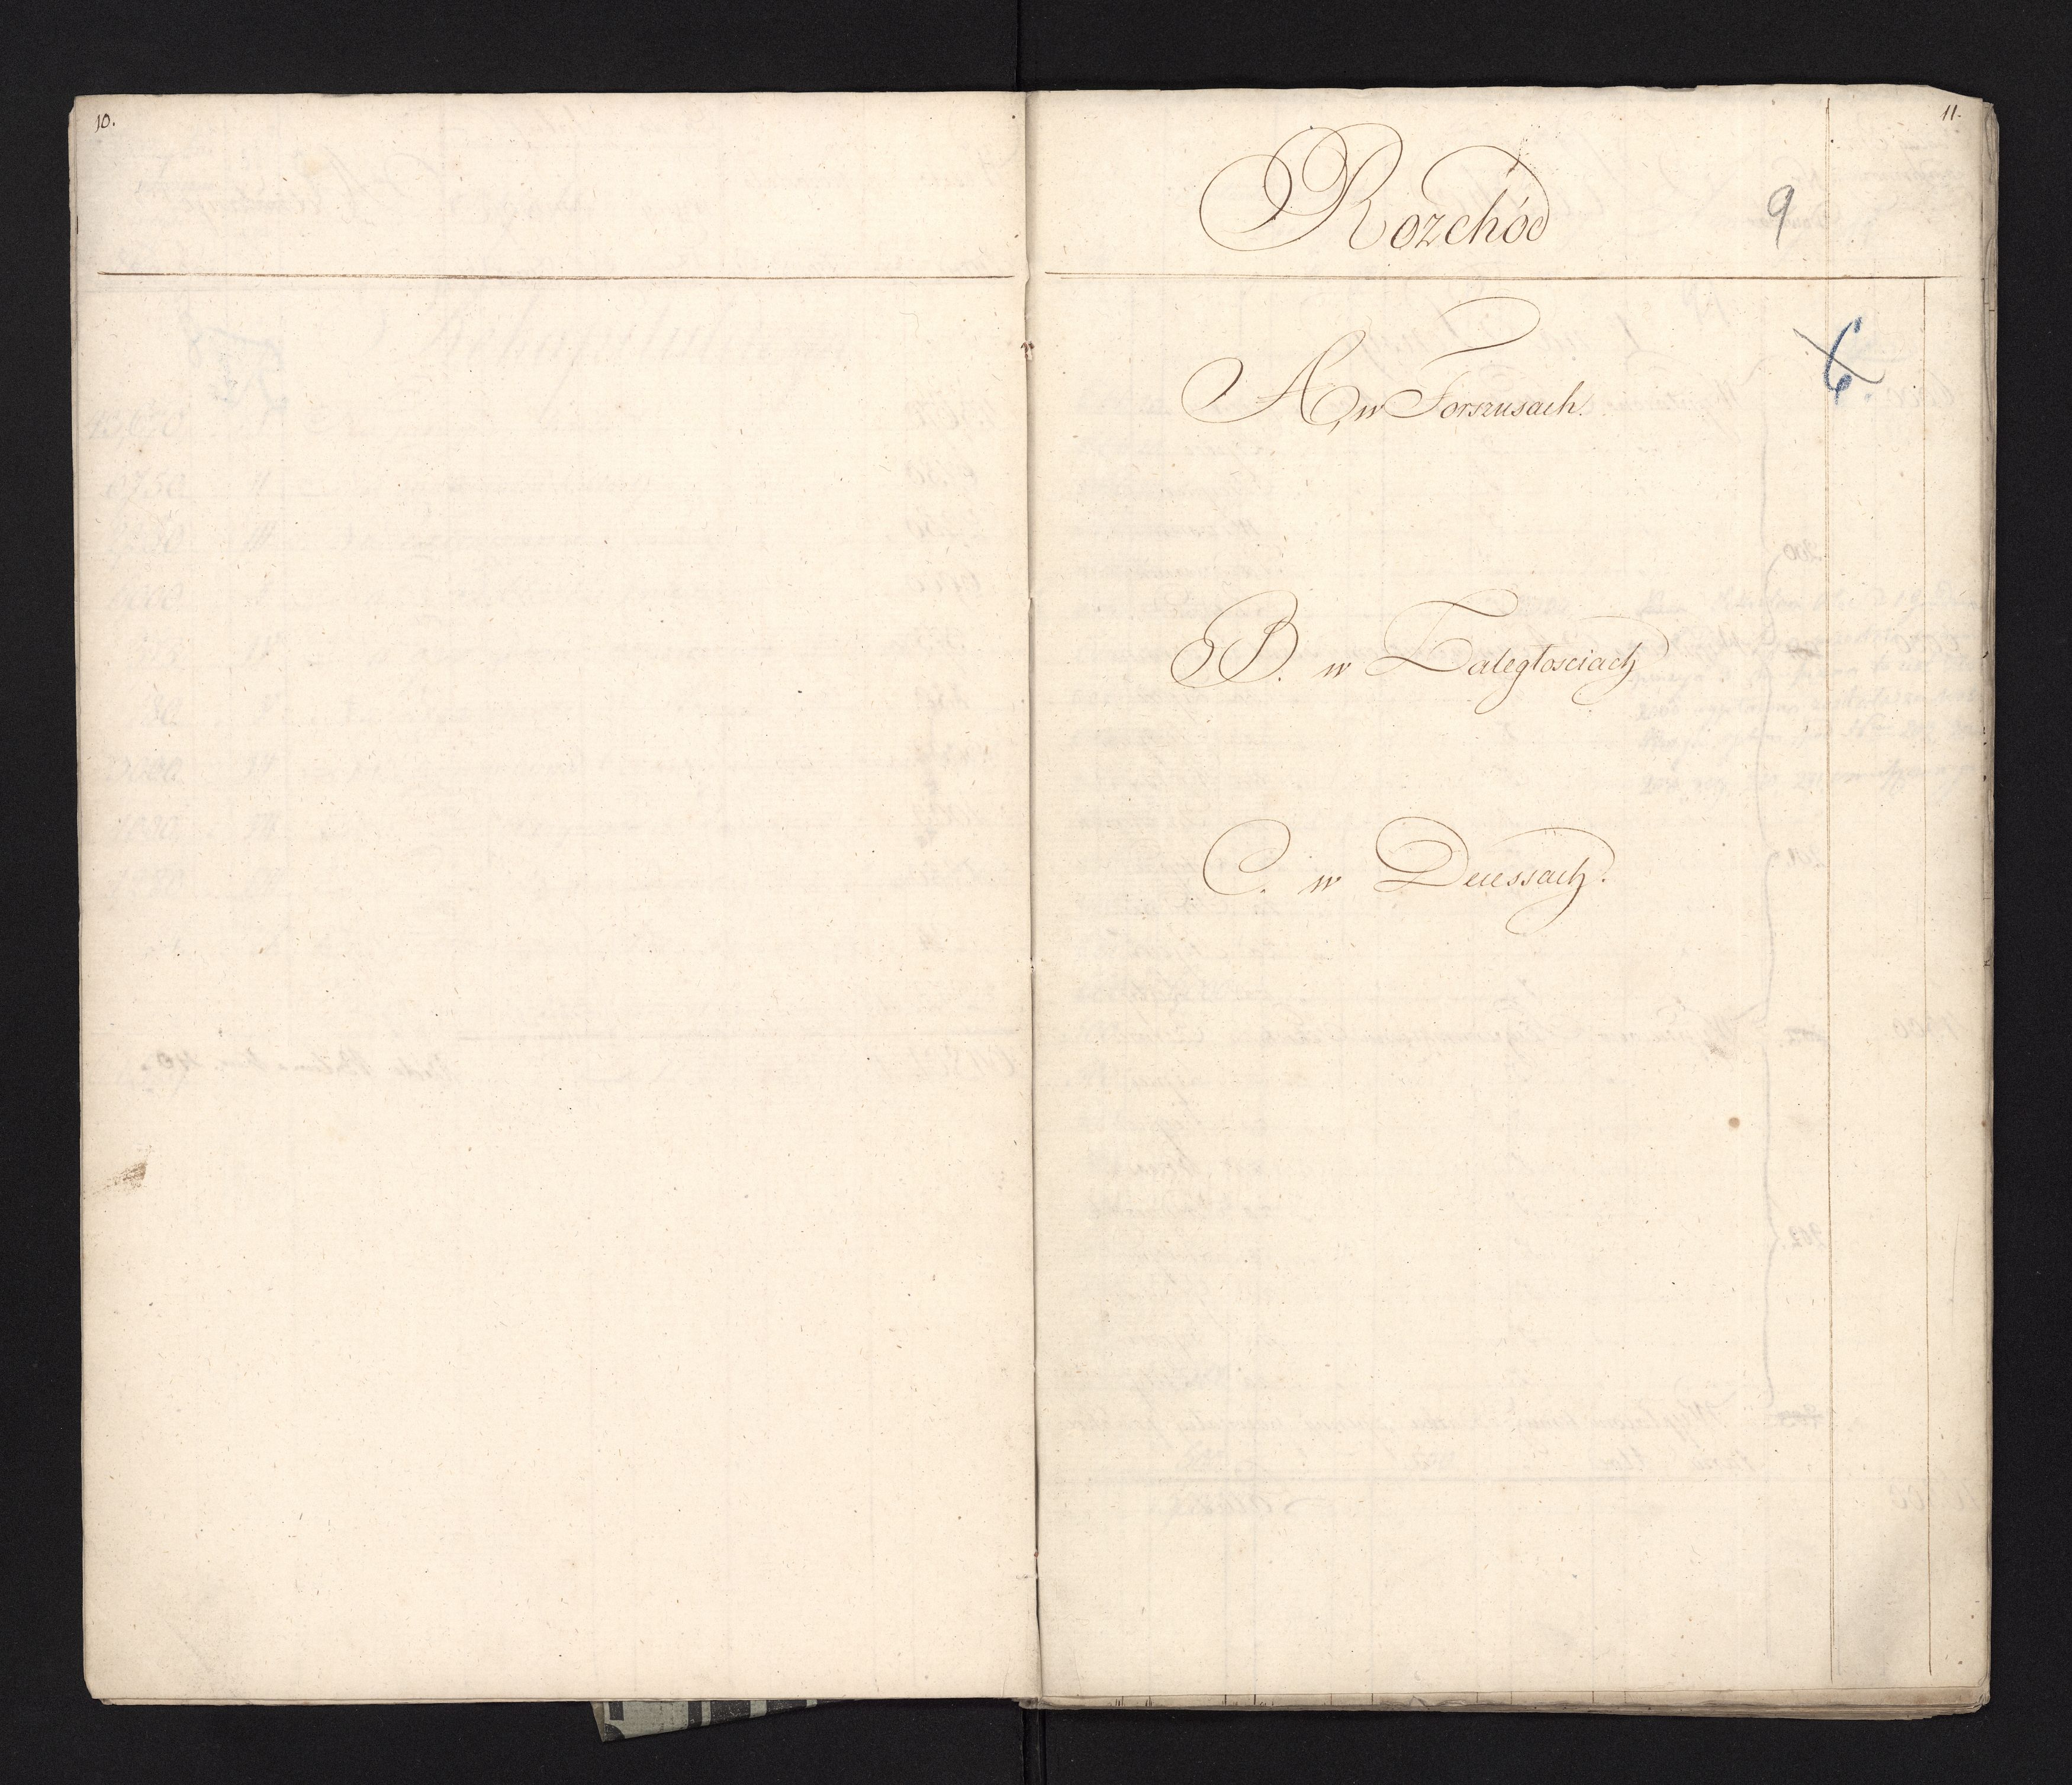 10.
11.
Rozchód
9
6
A, w Forszusach.
B. w Zaległosciach
C. w Decessach.